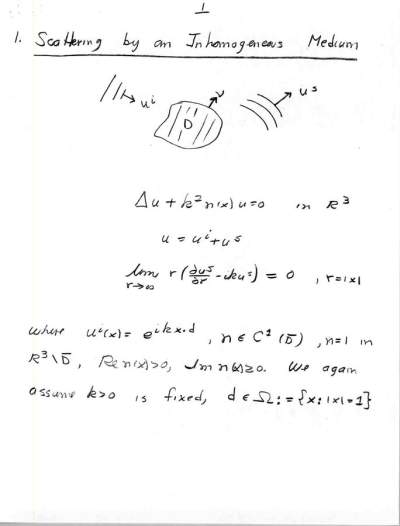 1
1. Scattering by an Inhomogeneous Medium
uⁱ
D
ν
uˢ
Δu + k²n(x)u = 0 in R³
u = uⁱ + uˢ
lim r→∞ r(∂uˢ/∂r - ikuˢ) = 0 , r=|x|
where uⁱ(x) = e^{ikx·d} , n ∈ C¹(D̄) , n=1 in
R³\D̄, Re n(x)>0, Im n(x)≥0. We again
assume k>0 is fixed, d ∈ Ω := {x: |x|=1}